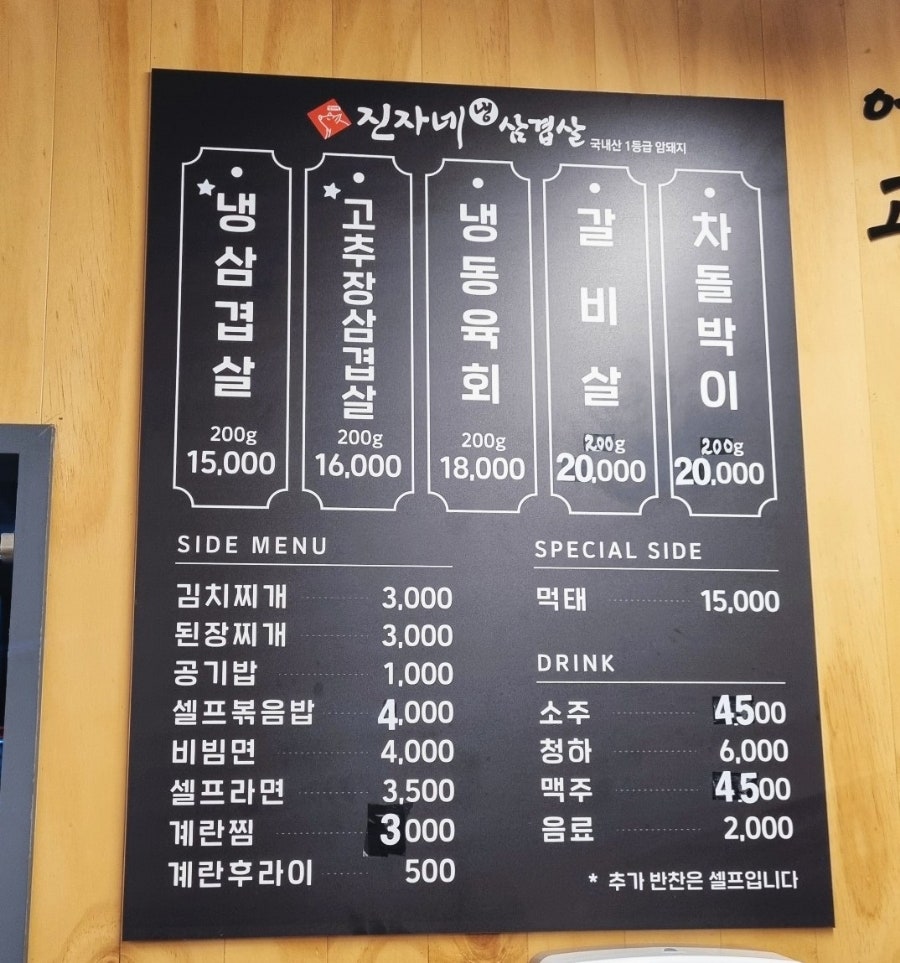 진자네 냉 삼겹살 국내산 1등급 암돼지
냉삼겹살
200g
15,000
고추장삼겹살
200g
16,000
냉동육회
200g
18,000
갈비살
200g
20,000
차돌박이
200g
20,000
SIDE MENU
김치찌개 3,000
된장찌개 3,000
공기밥 1,000
셀프볶음밥 4,000
비빔면 4,000
셀프라면 3,500
계란찜 3000
계란후라이 500
SPECIAL SIDE
먹태 15,000
DRINK
소주 4500
청하 6,000
맥주 4500
음료 2,000
* 추가 반찬은 셀프입니다